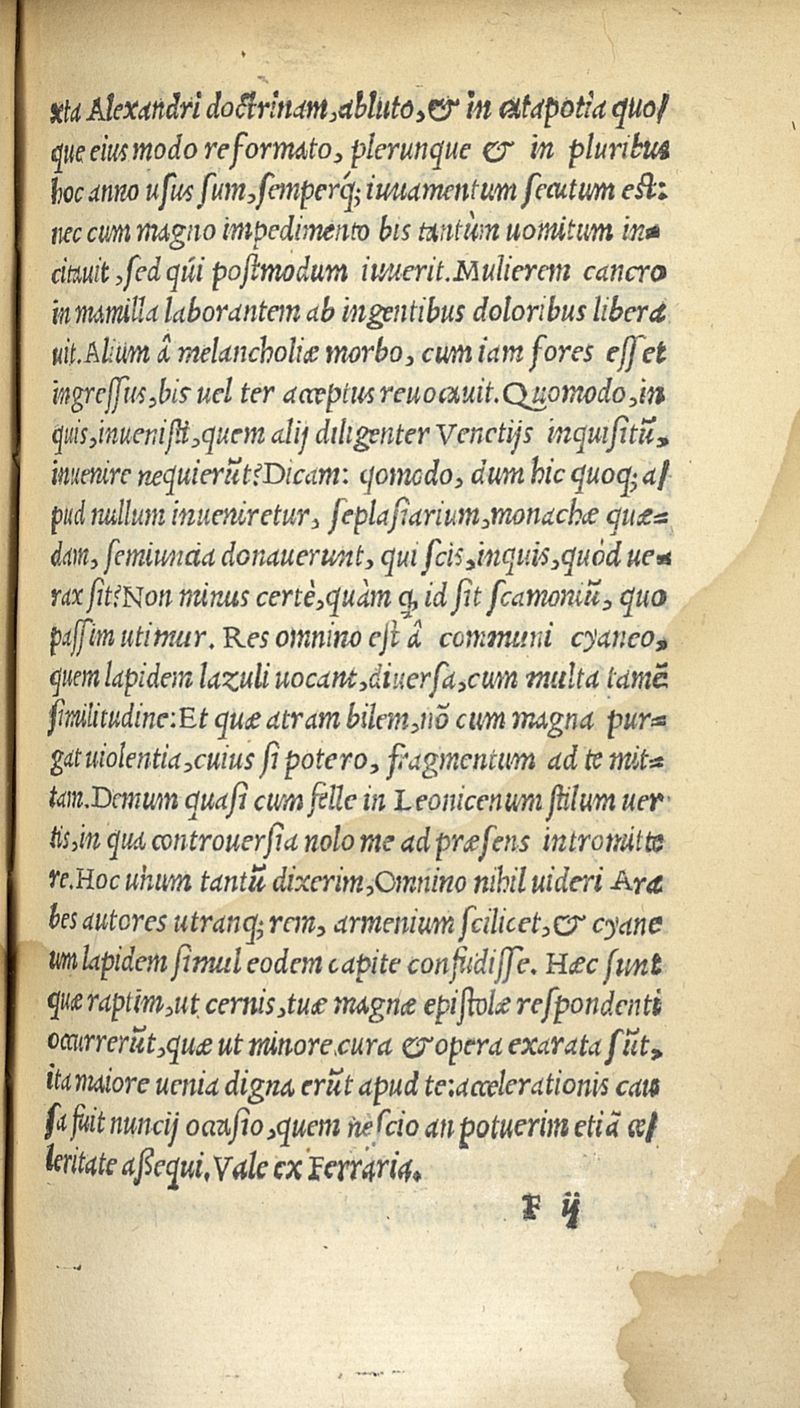 xta Alexandri doctrinam, abluto, & in catapotia quo/
que eius modo reformato, plerunque & in pluribus
hoc anno usus sum, semperq́; iuuamentum secutum est:
nec cum magno impedimento bis tantùm uomitum in-
citauit, sed qúi postmodum iuuerit. Mulierem cancro
in mamilla laborantem ab ingentibus doloribus libera
uit. Alium â melancholiæ morbo, cum iam fores esset
ingressus, bis uel ter acceptus reuocauit. Quomodo, in
quis, inuenisti, quem alij diligenter Venetijs inquisitũ,
inuenire nequierũt? Dicam: qomodo, dum hic quoq; a/
pud nullum inueniretur, seplasiarium, monachæ quæ-
dam, semiuncia donauerunt, qui scis, inquis, quòd ue-
rax sit? Non minus certè, quàm ꝙ id sit scamoniũ, quo
passim utimur. Res omnino est â communi cyaneo,
quem lapidem lazuli uocant, diuersa, cum multa tamẽ
similitudine: Et quæ atram bilem, nõ cum magna pur-
gat uiolentia, cuius si potero, fragmentum ad te mit-
tam. Demum quasi cum felle in Leonicenum stilum uer
tis, in qua controuersia nolo me ad præsens intromitte
re. Hoc unum tantũ dixerim, Omnino nihil uideri Ara
bes autores utranq; rem, armenium scilicet, & cyane
um lapidem simul eodem capite confudisse. Hæc sunt
quæ raptim, ut cernis, tuæ magnæ epistolæ respondenti
occurrerũt, quæ ut minore cura & opera exarata sũt,
ita maiore uenia digna erũt apud te: accelerationis cau
sa fuit nuncij occasio, quem nescio an potuerim etiã ce/
leritate assequi. Vale ex Ferraria.
F ij